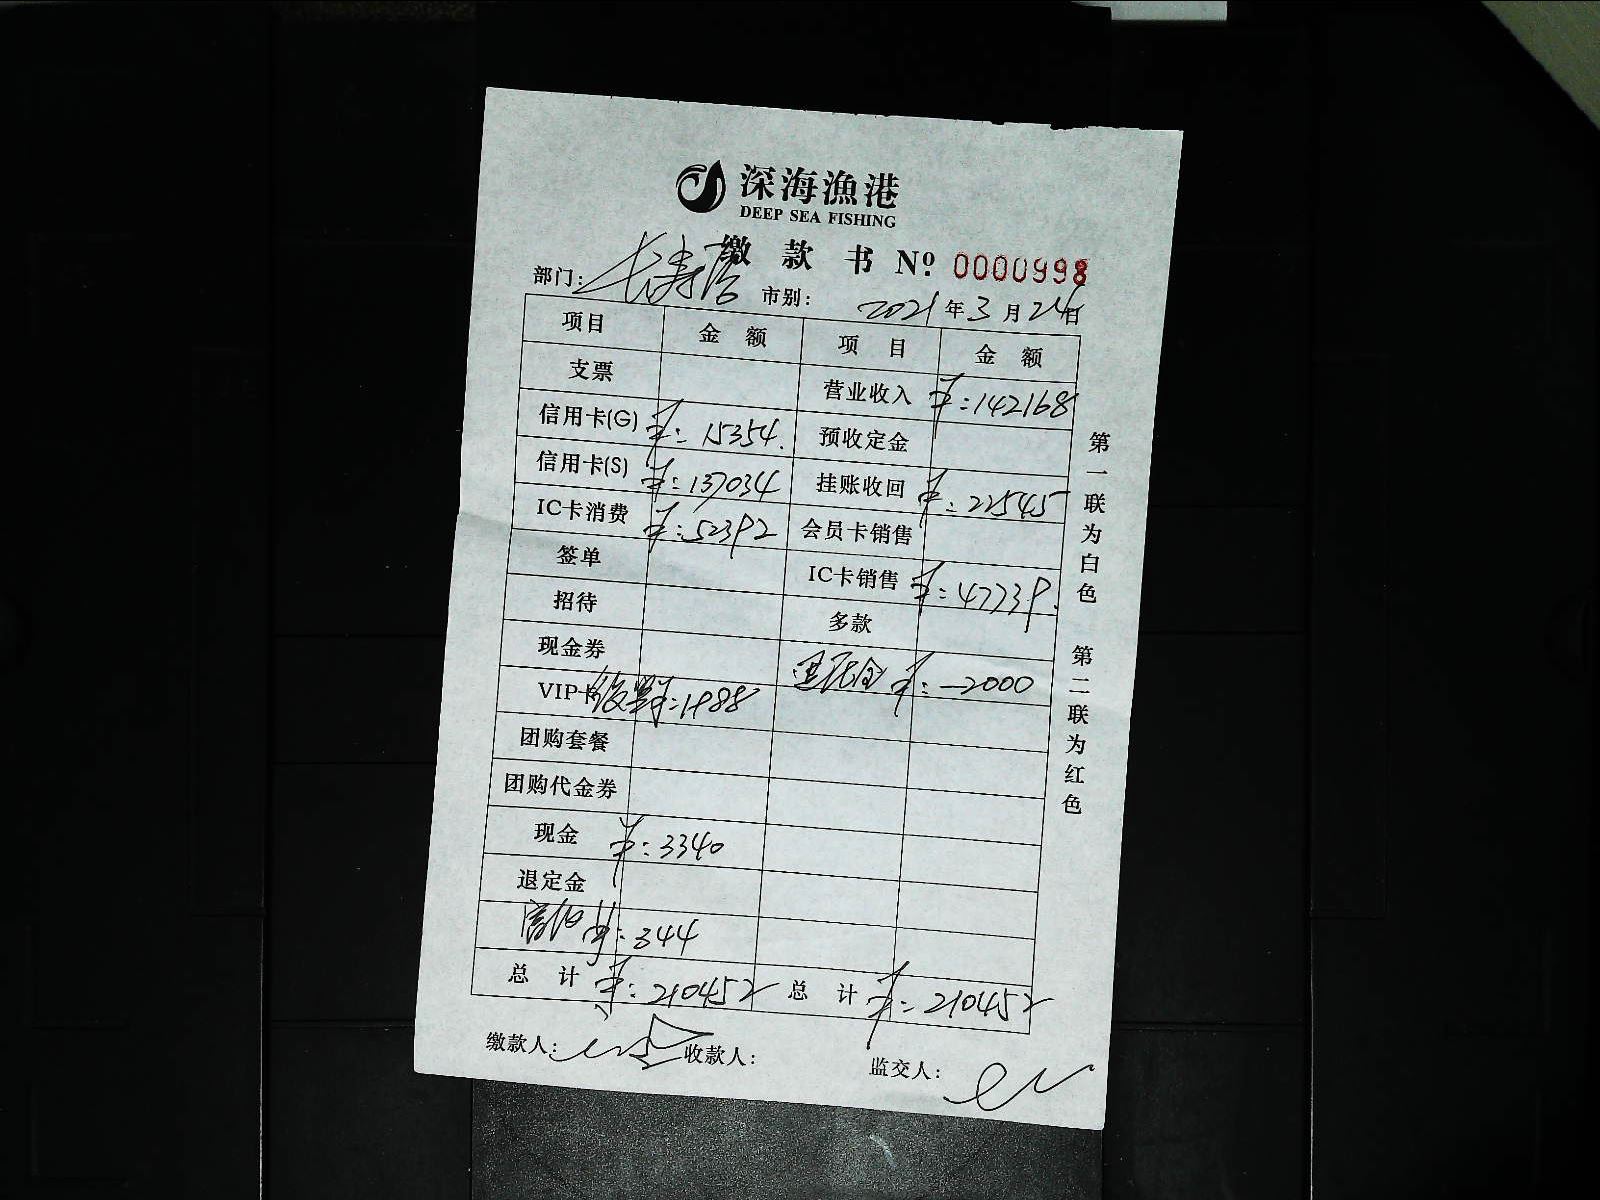 深海漁港
DEEP SEA FISHING
缴款书 Nº 0000998
部门: 长寿店 市别: 2021年3月24日
项目 金额 项目 金额
支票 营业收入 ¥:142168
信用卡(G) ¥:15354. 预收定金
信用卡(S) ¥:137034 挂账收回 ¥:22545
IC卡消费 ¥:52392 会员卡销售
签单 IC卡销售 ¥:47739.
招待 多款
现金券 ¥:-2000
VIP卡 ¥:1988
团购套餐
团购代金券
现金 ¥:3340
退定金
¥:344
总计 ¥:210452 总计 ¥:210452
缴款人: 收款人: 监交人:
第一联为白色 第二联为红色